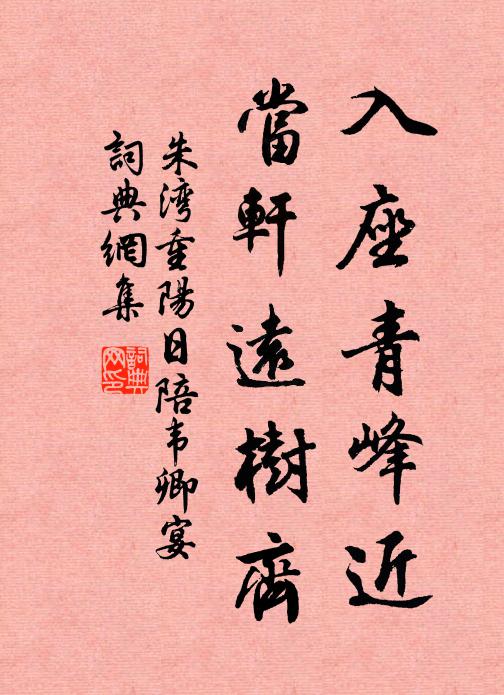 入座青峰近
當軒遠樹齊
朱湾重陽日陪韦卿宴
詞典網集
詞典
网印